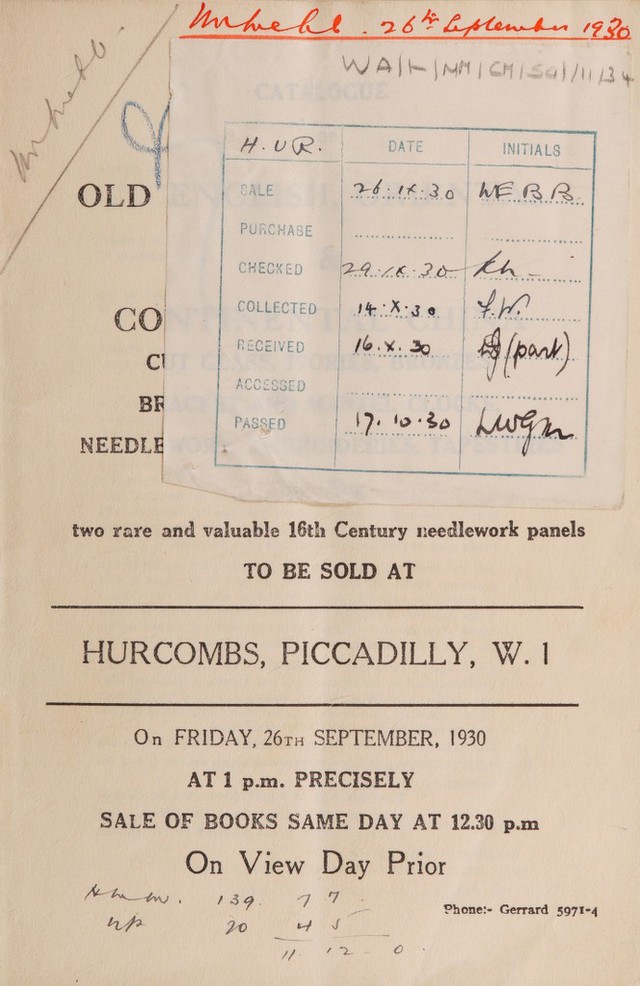 Mr Webb. 26th September 1930
Mr Webb.
WA/HMM/CM/SGI/11/34
CATALOGUE
H.UR. DATE INITIALS
SALE 26.IX.30 WEBB.
PURCHASE
CHECKED 29.IX.30
COLLECTED 14.X.30 F.W.
RECEIVED 16.X.30 (part)
ACCESSED
PASSED 17.10.30
OLD ENGLISH,
&
CONTINENTAL
CUT GLASS,
BR
NEEDLEWORK
two rare and valuable 16th Century needlework panels
TO BE SOLD AT
HURCOMBS, PICCADILLY, W. 1
On FRIDAY, 26TH SEPTEMBER, 1930
AT 1 p.m. PRECISELY
SALE OF BOOKS SAME DAY AT 12.30 p.m
On View Day Prior
139. 7 7
Phone:- Gerrard 5971-4
20 4 5
11 12 0.